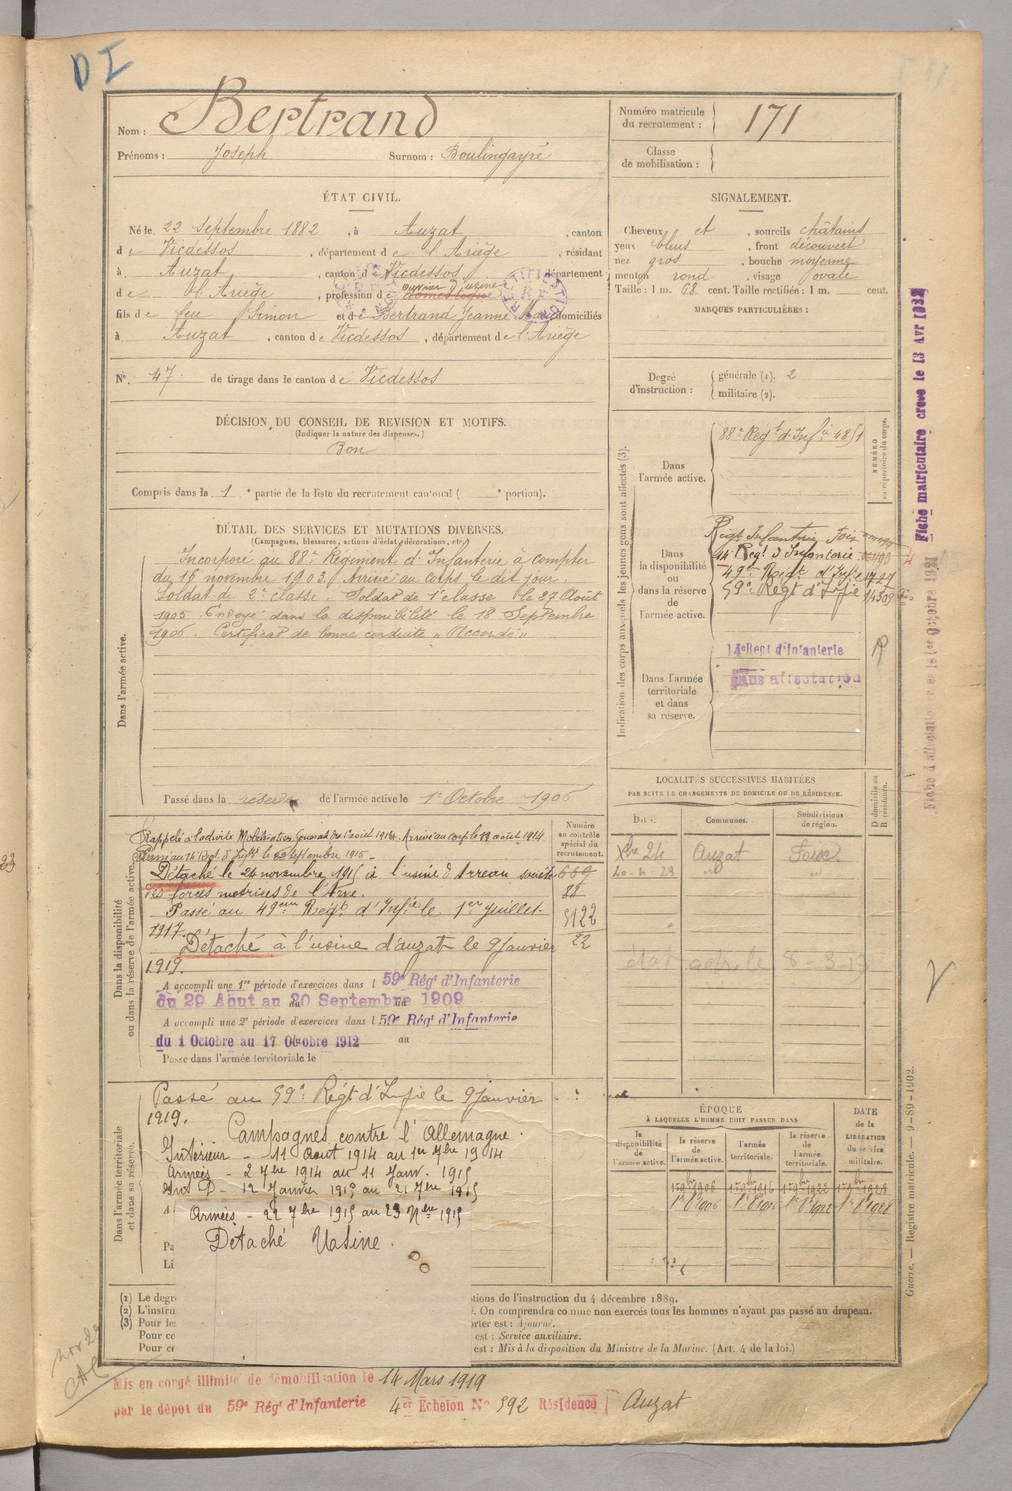 D I
Nom : Bertrand
Prénoms : Joseph Surnom : Boulingayré
Numéro matricule du recrutement : 171
Classe de mobilisation :
ÉTAT CIVIL.
Né le 22 Septembre 1882, à Auzat, canton
de Vicdessos, département de l'Ariège, résidant
à Auzat, canton de Vicdessos, département
d e l'Ariège, profession de ouvrier d'usine domestique
fils de feu Simon et de Bertrand Jeanne domiciliés
à Auzat, canton de Vicdessos, département de l'Ariège
N°. 47 de tirage dans le canton de Vicdessos
SIGNALEMENT.
Cheveux et, sourcils châtains
yeux bleus, front découvert
nez gros, bouche moyenne
menton rond, visage ovale
Taille : 1 m. 68 cent. Taille rectifiée : 1 m. cent.
MARQUES PARTICULIÈRES :
Degré d'instruction : générale (1). 2
militaire (2).
DÉCISION DU CONSEIL DE REVISION ET MOTIFS.
(Indiquer la nature des dispenses.)
Bon
Compris dans la 1e partie de la liste du recrutement cantonal ( e portion).
DÉTAIL DES SERVICES ET MUTATIONS DIVERSES.
(Campagnes, blessures, actions d'éclat, décorations, etc.)
Dans l'armée active.
Incorporé au 88e Régiment d'Infanterie à compter
du 15 novembre 1903. Arrivé au corps le dit jour.
Soldat de 2e classe. Soldat de 1e classe le 27 Août
1905. Envoyé dans la disponibilité le 18 Septembre
1906. Certificat de bonne conduite "Accordé"
Passé dans la réserve de l'armée active le 1er Octobre 1906
Indication des corps auxquels les jeunes gens sont affectés (3).
NUMÉRO au répertoire du corps.
Dans l'armée active. 88e Régt d'Infie 4851
Dans la disponibilité ou dans la réserve de l'armée active.
Régt Infanterie Foix
14e Regt d'Infanterie
49e Regt d'Infie
59e Regt d'Infie 14309 bis
Dans l'armée territoriale et dans sa réserve.
14e Regt d'Infanterie
Sans affectation
R
Fiche matriculaire créée le 13 Avr 1932
LOCALITÉS SUCCESSIVES HABITÉES
PAR SUITE DE CHANGEMENTS DE DOMICILE OU DE RÉSIDENCE.
Dates. Communes. Subdivisions de région. D domicile ou R résidence.
Xbre 24 Auzat Foix
20-4-29
8-3-19
Dans la disponibilité ou dans la réserve de l'armée active.
Numéro au contrôle spécial du recrutement.
669
88
5122
22
Rappelé à l'activité Mobilisation Générale du 1er août 1914. Arrivé au corps le 12 août 1914
Passé au 14e Regt d'Infie le 22 Septembre 1915
Détaché le 24 novembre 1915 à l'usine d'Arreau société
des forces motrices de l'
Passé au 49ème Régt d'Infie le 1er Juillet
1917.
Détaché à l'usine d'Auzat le 9 janvier
1919.
A accompli une 1re période d'exercices dans l 59e Régt d'Infanterie
du 29 Août au 20 Septembre 1909
A accompli une 2e période d'exercices dans l 59e Régt d'Infanterie
du 1 Octobre au 17 Octobre 1912 au
Passé dans l'armée territoriale le
Dans l'armée territoriale et dans sa réserve.
Passé au 59e Régt d'Infie le 9 janvier
1919.
Campagnes contre l'Allemagne.
Intérieur - 11 Août 1914 au 1er 7bre 1914
Armées - 2 7bre 1914 au 11 Janv. 1915
Int D - 12 Janvier 1915 au 21 7bre 1915
Armées - 22 7bre 1915 au 23 Nbre 1915
Détaché Usine.
ÉPOQUE
À LAQUELLE L'HOMME DOIT PASSER DANS
la disponibilité de l'armée active.
la réserve de l'armée active.
l'armée territoriale.
la réserve de l'armée territoriale.
DATE de la LIBÉRATION du service militaire.
1er 9bre 1906 1er 9bre 1916 1er 9bre 1922 1er 9bre 1928
1er 8bre 1906 1er 8bre 1916 1er 8bre 1922 1er 8bre 1928
(1) Le degré
(2) L'instru
(3) Pour les
Pour ce
Pour ce
tions de l'instruction du 4 décembre 1889.
. On comprendra comme non exercés tous les hommes n'ayant pas passé au drapeau.
orter est : Ajourné.
est : Service auxiliaire.
est : Mis à la disposition du Ministre de la Marine. (Art. 4 de la loi.)
Guerre. — Registre matricule. — 9-89-1902.
Mis en congé illimité de démobilisation le 14 Mars 1919
par le dépot du 59e Régt d'Infanterie 4er Echelon No 592 Résidence Auzat